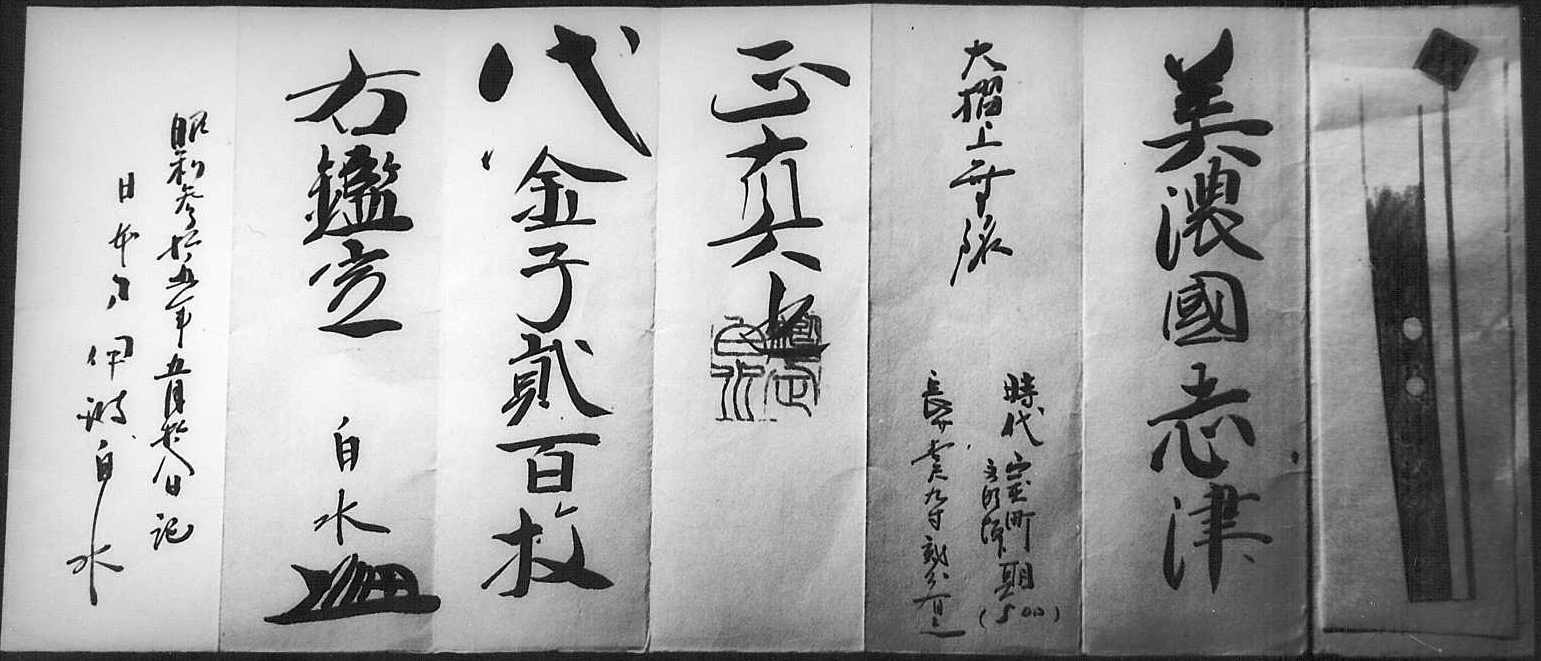 美濃國志津
大摺上無銘
時代 室町期
(500)
長サ壹尺九寸
正真也
代金子貳百枚
右鑑定
白水
昭和参拾五年五月
記
日本刀 伊波白水